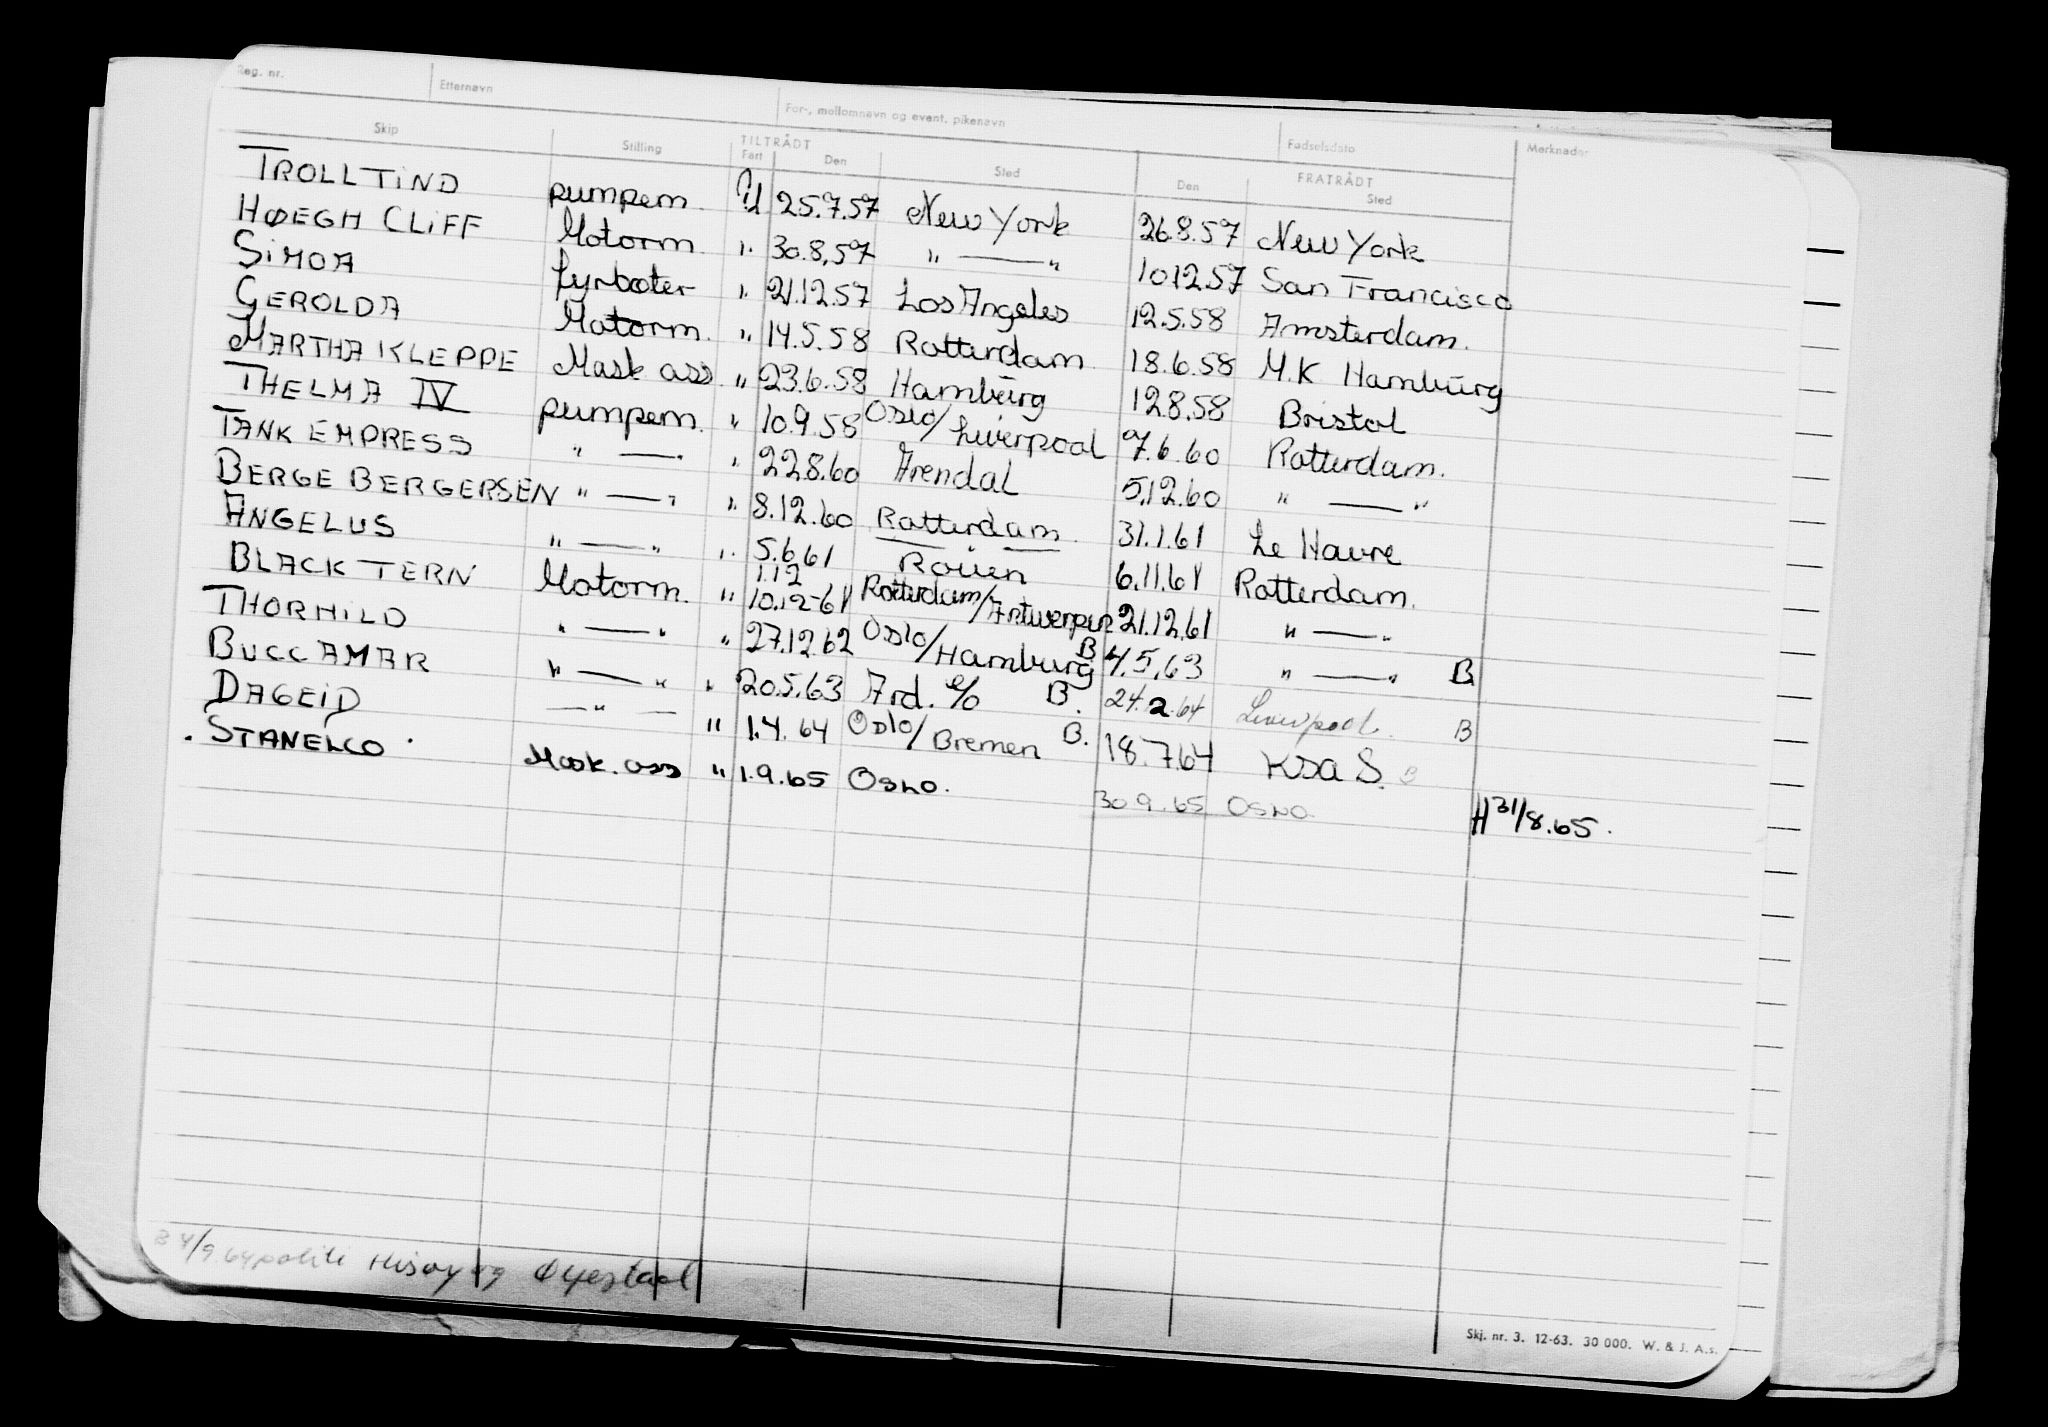 Reg. nr. Etternavn For-, mellomnavn og event. pikenavn Fødselsdato Merknader
Skip Stilling TILTRÅDT FRATRÅDT
Fart Den Sted Den Sted
TROLLTIND pumpem. U 25.7.57 New York 26.8.57 New York
HØEGH CLIFF Motorm. " 30.8.57 " — " 10.12.57 San Francisco
SIMOA Fyrbøter " 21.12.57 Los Angeles 12.5.58 Amsterdam.
GEROLDA Motorm. " 14.5.58 Rotterdam 18.6.58 M.K Hamburg
MARTHA KLEPPE Mask ass. " 23.6.58 Hamburg 12.8.58 Bristol
THELMA IV pumpem. " 10.9.58 Oslo/Liverpool 7.6.60 Rotterdam.
TANK EMPRESS " — " " 22.8.60 Arendal 5.12.60 " — "
BERGE BERGERSEN " — " " 8.12.60 Rotterdam. 31.1.61 Le Havre
ANGELUS " — " " 5.6.61 Rouen 6.11.61 Rotterdam.
BLACK TERN Motorm. " 1.12 10.12-61 Rotterdam/Antwerpen 21.12.61 " — "
THORHILD " — " " 27.12.62 Oslo/Hamburg B 4.5.63 " — " B
BUCCAMAR " — " " 20.5.63 Ard. e/o B. 24.2.64 Liverpool. B
DAGEID — " — " 1.4.64 Oslo/Bremen B. 18.7.64 KSa S. B
. STANELCO . Mask. ass " 1.9.65 OSLO. 30.9.65 OSLO. H 31/8.65.
B 4/9.64 politi Hisøy og Øyestad
Skj. nr. 3. 12-63. 30 000. W. & J. A.s.